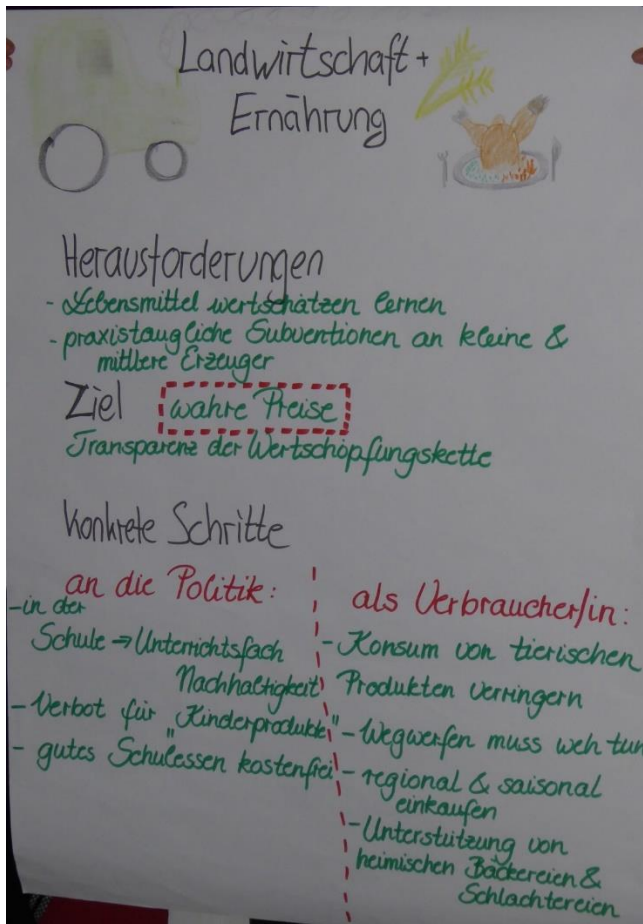 Landwirtschaft +
Ernährung
Herausforderungen
- Lebensmittel wertschätzen lernen
- praxistaugliche Subventionen an kleine &
mittlere Erzeuger
Ziel wahre Preise
Transparenz der Wertschöpfungskette
Konkrete Schritte
an die Politik:
- in der
Schule → Unterrichtsfach
Nachhaltigkeit
- Verbot für "Kinderprodukte"
- gutes Schulessen kostenfrei
als Verbraucher/in:
- Konsum von tierischen
Produkten verringern
- Wegwerfen muss weh tun
- regional & saisonal
einkaufen
- Unterstützung von
heimischen Bäckereien &
Schlachtereien